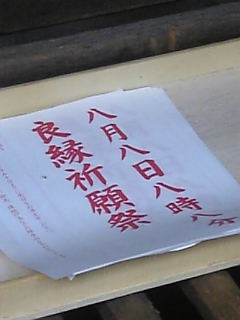 八月八日八時八分
良縁祈願祭